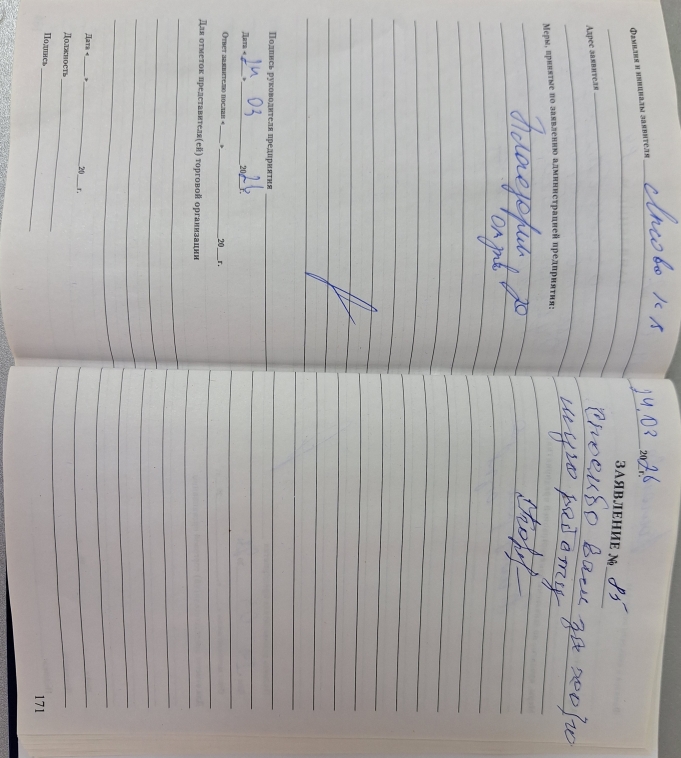 Фамилия и инициалы заявителя
Адрес заявителя
Меры, принятые по заявлению администрацией предприятия:
Подпись руководителя предприятия
Дата « 24 » 03 2026 г.
Ответ заявителю послан « » 20 г.
Для отметок представителя(ей) торговой организации
Дата « » 20 г.
Должность
Подпись
24.03 2026 г.
ЗАЯВЛЕНИЕ № 85
Спасибо вам за хоро
шую работу
171